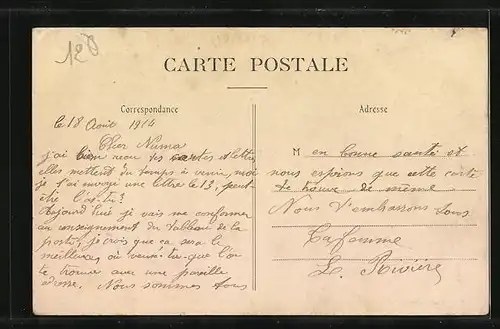 120
CARTE POSTALE
Correspondance
Adresse
le 18 Août 1914
Cher Numa
j'ai bien reçu tes cartes et lettres
elles mettent du temps à venir, moi
je t'ai envoyé une lettre le 13, peut-
être l'as-tu?
Aujourd'hui je vais me conformer
au renseignement du tableau de la
poste, je crois que ça sera le
meilleur, où veux-tu que l'on
te trouve avec une pareille
adresse. Nous sommes tous
M en bonne santé et
nous espérons que cette carte
te trouve de même
Nous t'embrassons tous
Ta femme
L. Rivière